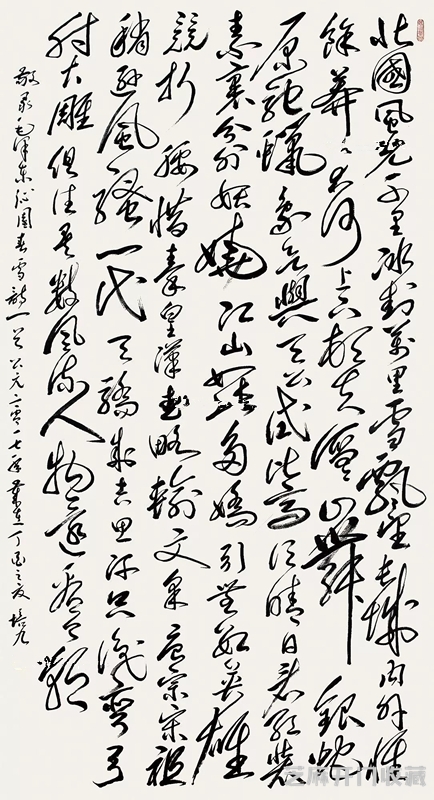 北國風光千里冰封萬里雪飄望長城内外惟
餘莽莽大河上下頓失滔滔山舞銀蛇
原馳蠟象欲與天公試比高須晴日看紅裝
素裹分外妖嬈江山如此多嬌引無數英雄
競折腰惜秦皇漢武略輸文采唐宗宋祖
稍遜風騷一代天驕成吉思汗只識彎弓
射大雕俱往矣數風流人物還看今朝
敬录毛泽东沁園春雪詞一首公元二零一七年歲在丁酉之夏
芝麻开门收藏